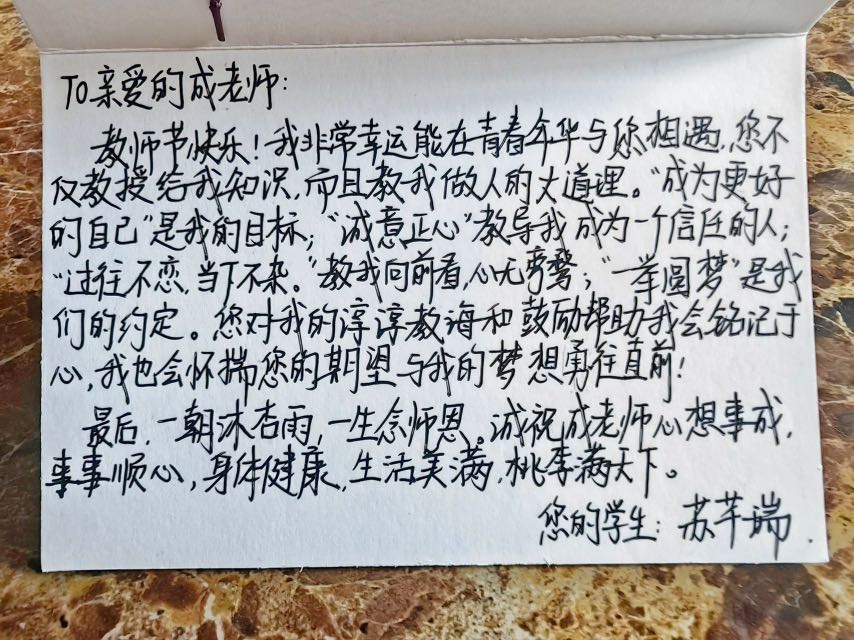 TO亲爱的成老师：
教师节快乐！我非常幸运能在青春年华与您相遇，您不
仅教授给我知识，而且教我做人的大道理。“成为更好
的自己”是我的目标；“诚意正心”教导我成为一个信任的人；
“过往不恋，当下不杂。”教我向前看，心无旁骛；“一举圆梦”是我
们的约定。您对我的淳淳教诲和鼓励帮助我会铭记于
心，我也会怀揣您的期望与我的梦想勇往直前！
最后，一朝沐杏雨，一生念师恩。诚祝成老师心想事成，
事事顺心，身体健康，生活美满，桃李满天下。
您的学生：苏芊瑞